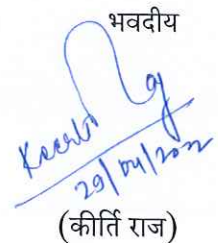 भवदीय
Keerti Raj
29/04/2022
(कीर्ति राज)